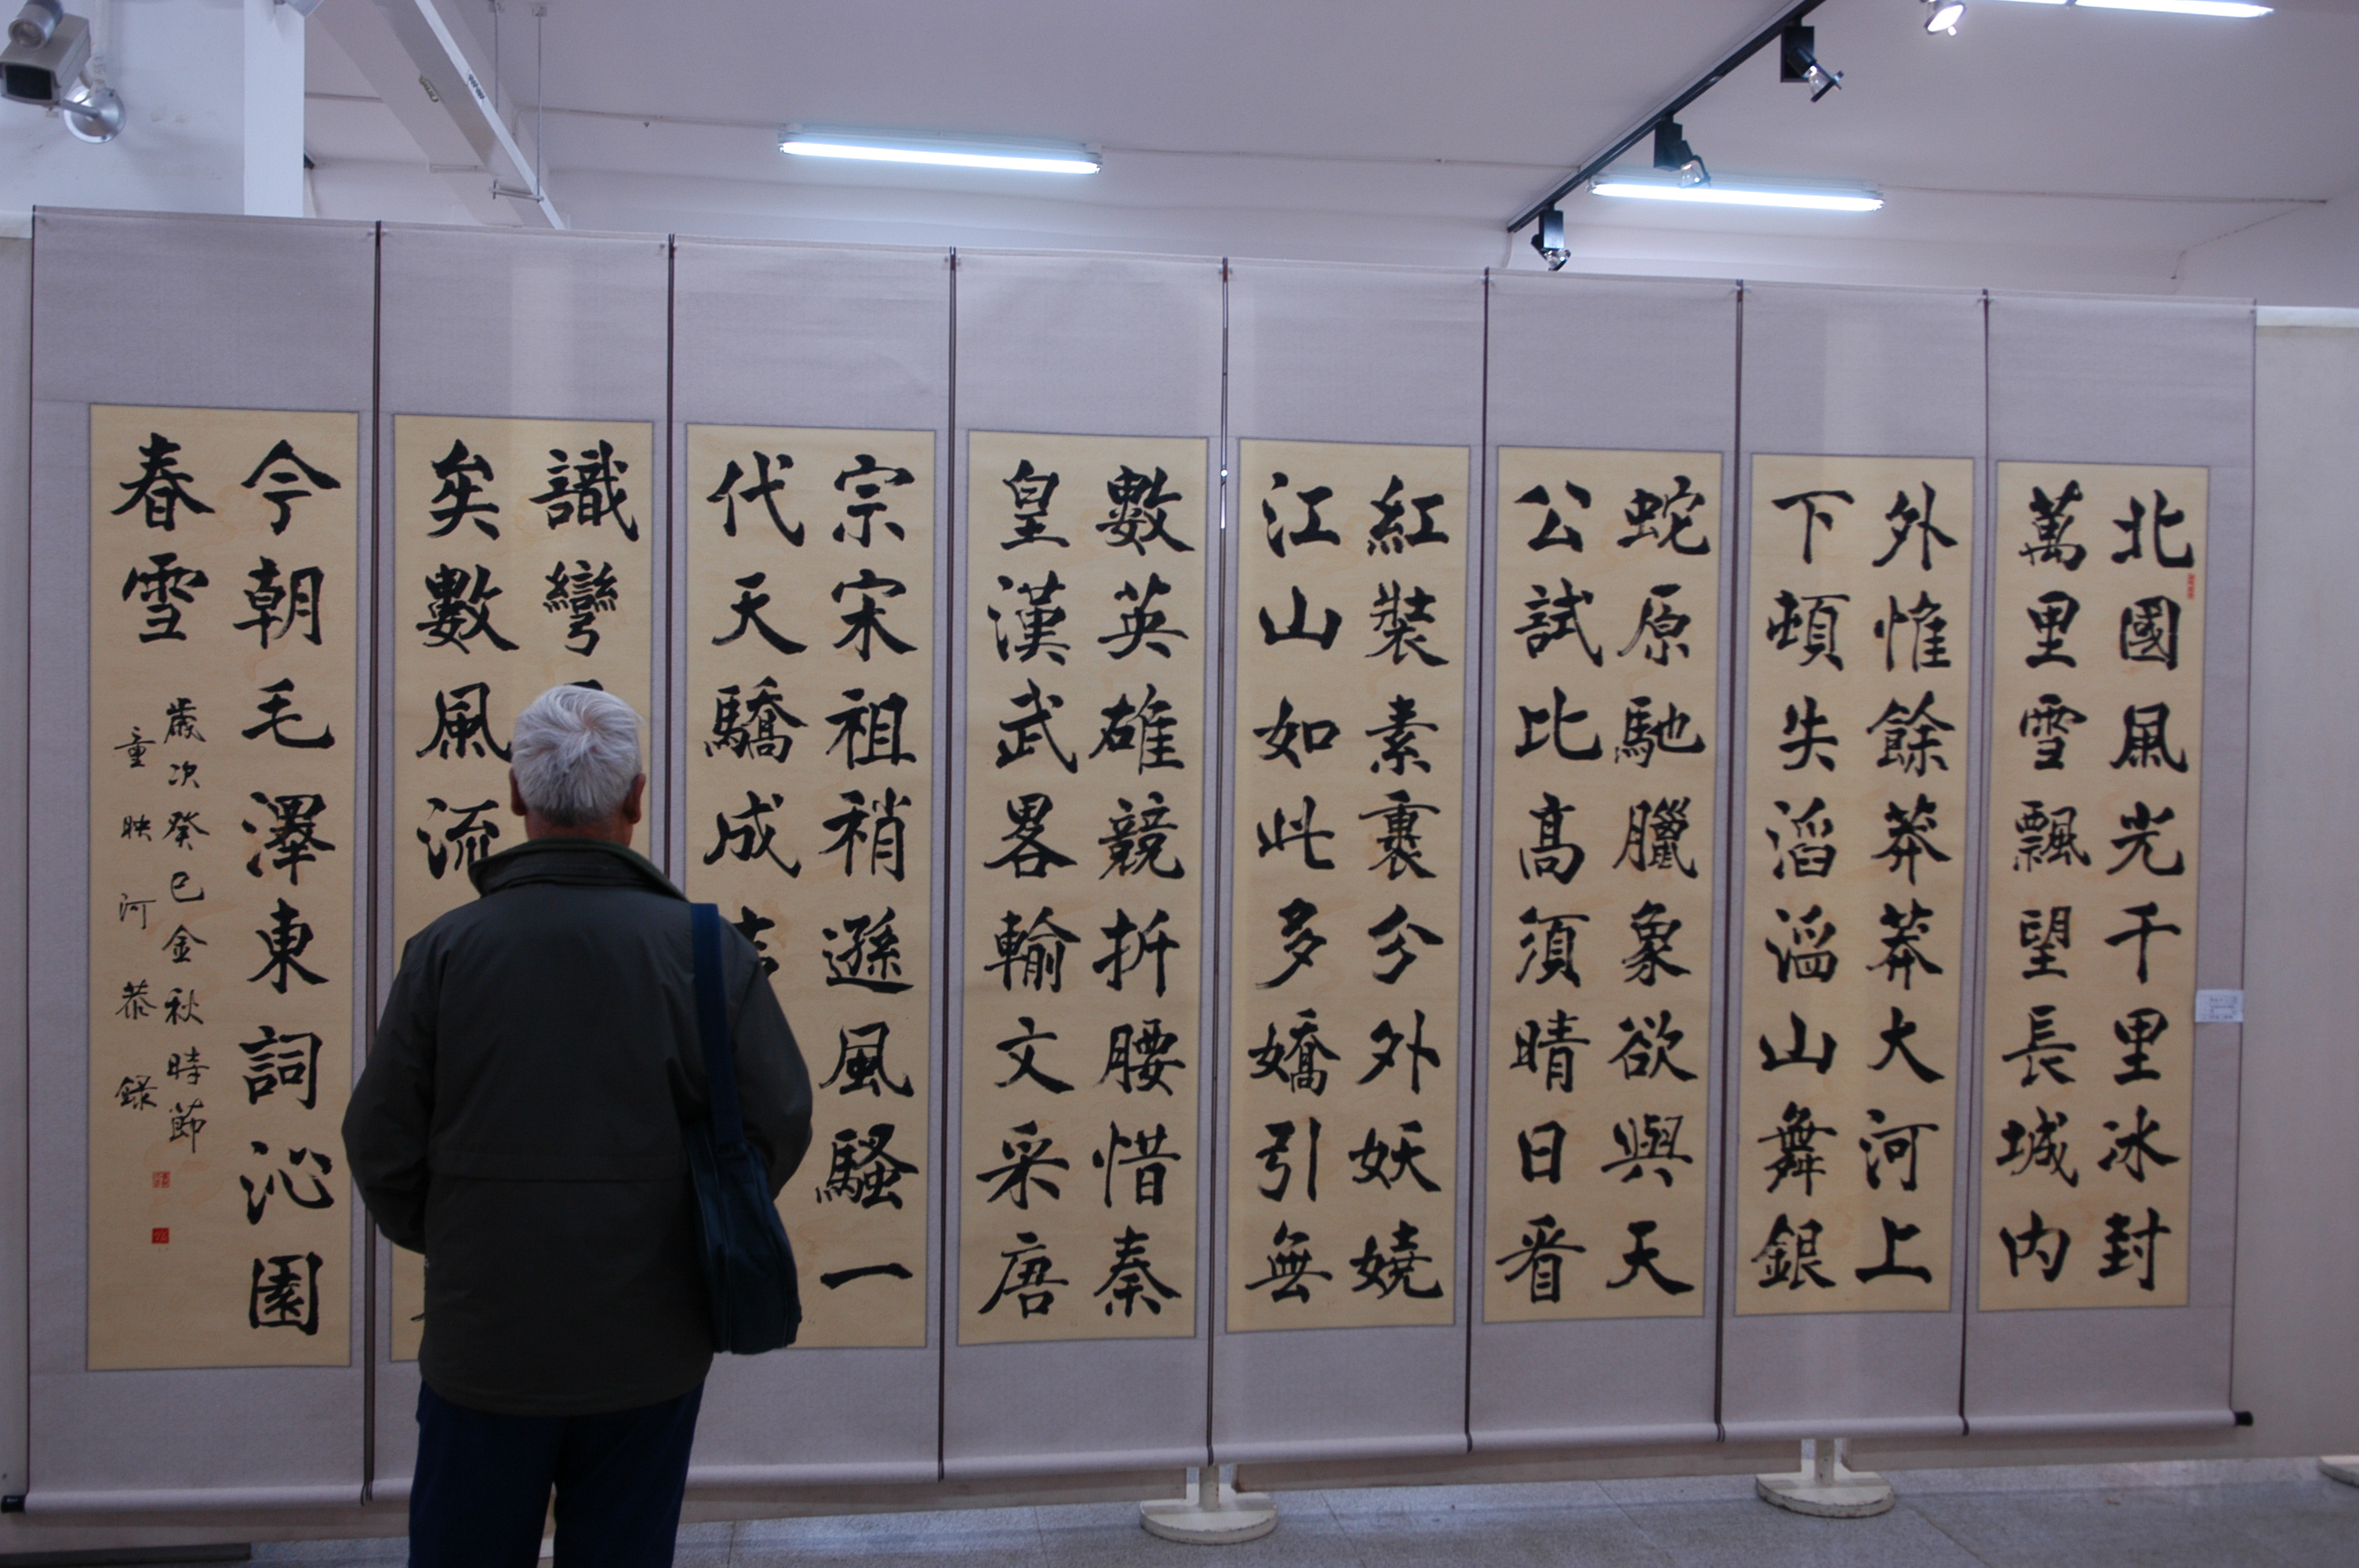 北國風光千里冰封
萬里雪飄望長城内
外惟餘莽莽大河上
下頓失滔滔山舞銀
蛇原馳臘象欲與天
公試比高須晴日看
紅裝素裹分外妖嬈
江山如此多嬌引無
數英雄競折腰惜秦
皇漢武畧輸文采唐
宗宋祖稍遜風騷一
代天驕成
識彎
矣數風流
今朝毛澤東詞沁園
春雪
歲次癸巳金秋時節
童映河恭錄